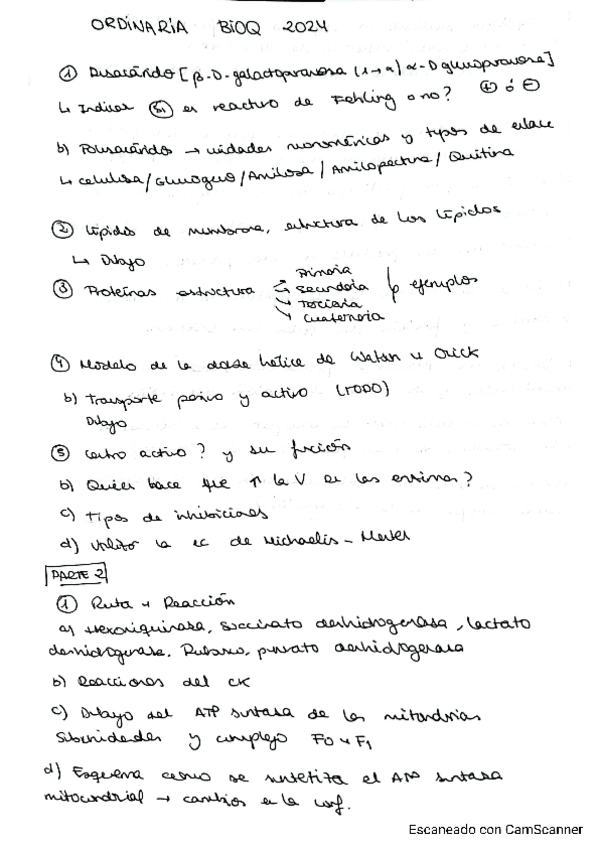 ORDINARIA BIOQ 2024
① Disacárido [β-D-galactopiranosa (1→4) α-D glucopiranosa]
↳ Indicar si es reactivo de Fehling o no? ⊕ ó ⊖
b) Polisacáridos → unidades monoméricas y tipos de enlace
↳ celulosa/Glucogeno/Amilosa/Amilopectina/Quitina
② Lípidos de membrana, estructura de los lípidos
↳ Dibujo
③ Proteínas estructura
Primaria
Secundaria
Terciaria
Cuaternaria
ejemplos
④ Modelo de la doble hélice de Watson y Crick
b) Transporte pasivo y activo (TODO)
Dibujo
⑤ Centro activo? y su función
b) Quién hace que ↑ la V en las enzimas?
c) Tipos de inhibiciones
d) Utilizar la ec de Michaelis-Menten
PARTE 2
① Ruta y Reacción
a) Hexoquinasa, Succinato deshidrogenasa, lactato
deshidrogenasa, Rubisco, piruvato deshidrogenasa
b) Reacciones del CK
c) Dibujo del ATP sintasa de las mitocondrias
Subunidades y complejo F0 y F1
d) Esquema como se sintetiza el ATP sintasa
mitocondrial → cambios en la conf.
Escaneado con CamScanner